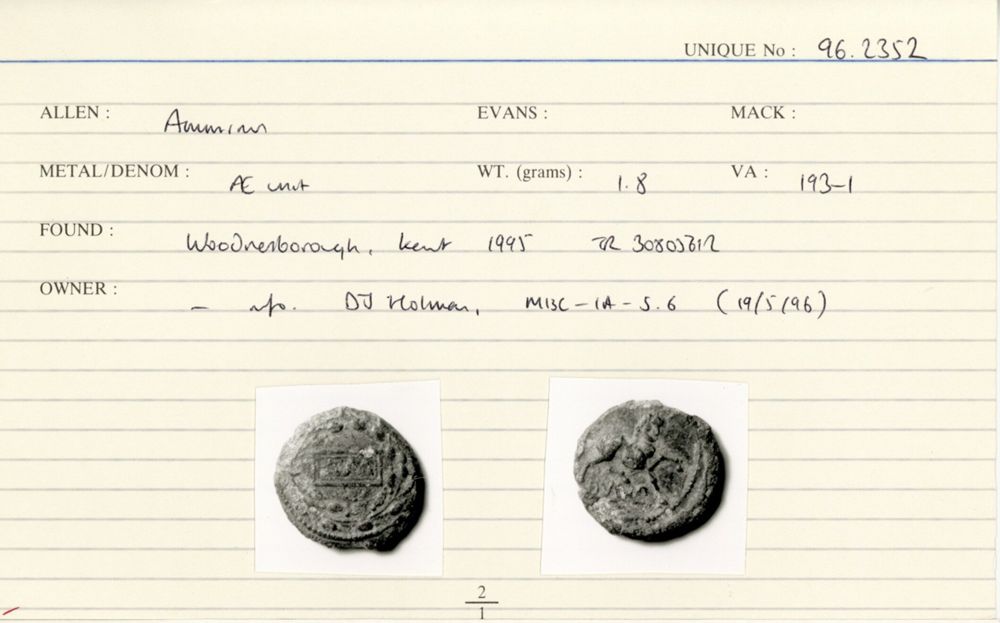 UNIQUE No : 96.2352
ALLEN : Amminus EVANS : MACK :
METAL/DENOM : Æ unit WT. (grams) : 1.8 VA : 193-1
FOUND : Woodnesborough, Kent 1995 TR 30803612
OWNER : - info. DJ Holman, M13C-IA-5.6 (19/5/96)
2
1